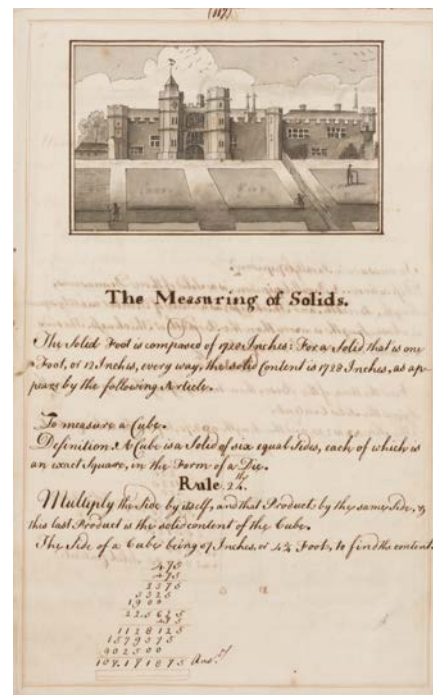 (117)
The Measuring of Solids.
The Solid Foot is composed of 1728 Inches: For a Solid that is one
Foot, or 12 Inches, every way, the solid Content is 1728 Inches, as ap-
pears by the following Article.
To measure a Cube.
Definition. A Cube is a Solid of six equal Sides, each of which is
an exact Square, in the Form of a Die.
Rule
Multiply the Side by itself, and that Product by the same Side, &
this last Product is the solid content of the Cube.
The Side of a Cube being 57 Inches, or 4¾ Foot, to find the content.
4.75
4.75
2375
3325
1900
22.5625
4.75
1128125
1579375
902500
107.171875 Ans.